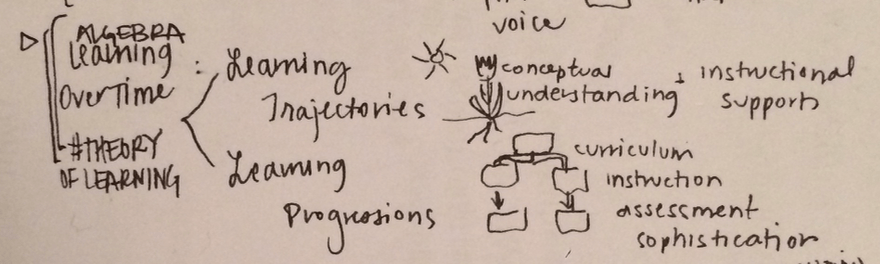 voice
ALGEBRA
Learning
Over Time
#THEORY
OF LEARNING
: Learning
Trajectories
Learning
Progressions
conceptual
understanding
+ instructional
supports
curriculum
instruction
assessment
sophistication